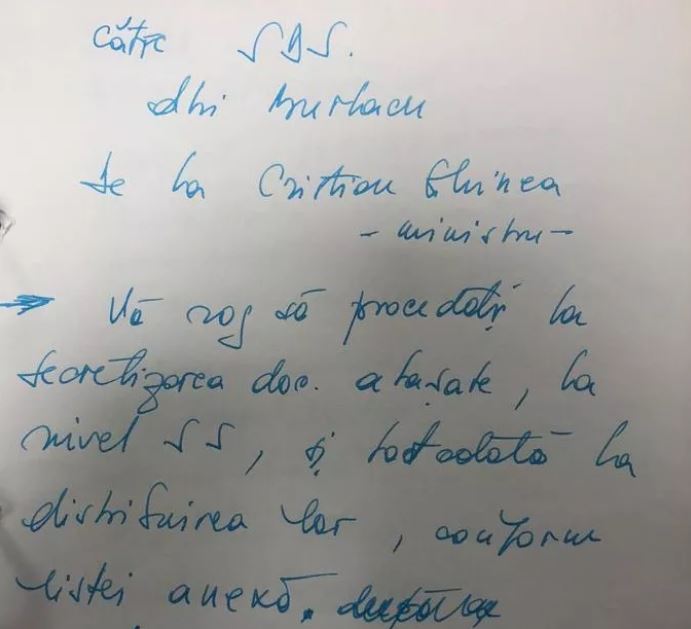 Către SDS.
dlui Burlacu
de la Cristian Ghinea
- ministru -
→ Vă rog să procedați la
secretizarea doc. atașate, la
nivel SS, și totodată la
distribuirea lor, conform
listei anexă.